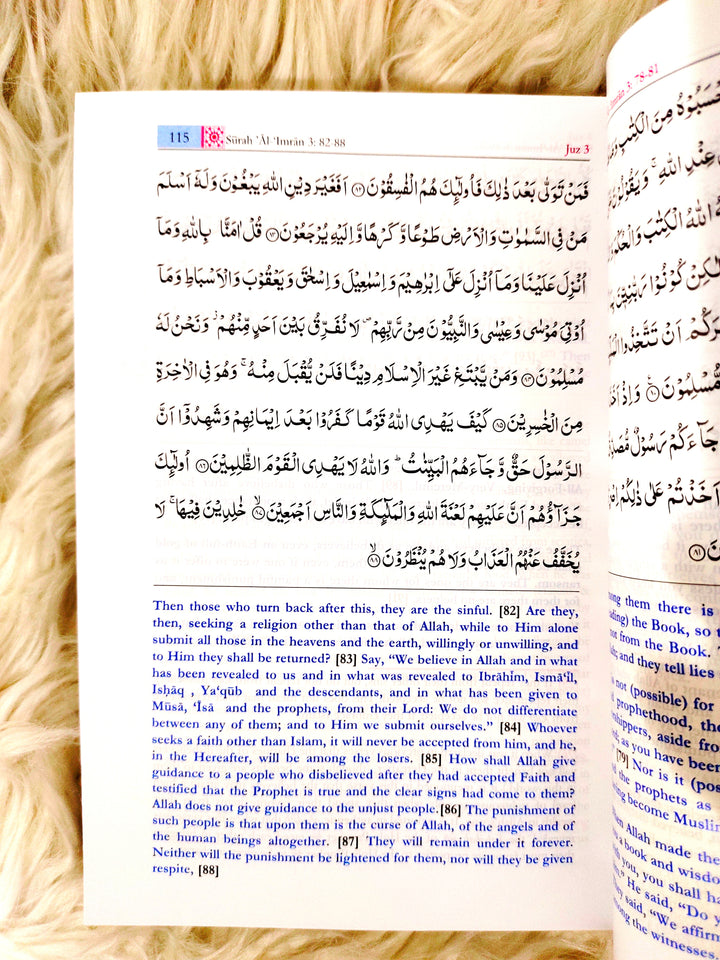 115 Sūrah 'Āl-'Imrān 3: 82-88 Juz 3
فَمَنْ تَوَلّٰى بَعْدَ ذٰلِكَ فَاُولٰٓئِكَ هُمُ الْفٰسِقُوْنَ ﴿٨٢﴾ اَفَغَيْرَ دِيْنِ اللّٰهِ يَبْغُوْنَ وَلَهٗٓ اَسْلَمَ
مَنْ فِى السَّمٰوٰتِ وَالْاَرْضِ طَوْعًا وَّكَرْهًا وَّاِلَيْهِ يُرْجَعُوْنَ ﴿٨٣﴾ قُلْ اٰمَنَّا بِاللّٰهِ وَمَآ
اُنْزِلَ عَلَيْنَا وَمَآ اُنْزِلَ عَلٰٓى اِبْرٰهِيْمَ وَاِسْمٰعِيْلَ وَاِسْحٰقَ وَيَعْقُوْبَ وَالْاَسْبَاطِ وَمَآ
اُوْتِىَ مُوْسٰى وَعِيْسٰى وَالنَّبِيُّوْنَ مِنْ رَّبِّهِمْ ۪ لَا نُفَرِّقُ بَيْنَ اَحَدٍ مِّنْهُمْ ۫ وَنَحْنُ لَهٗ
مُسْلِمُوْنَ ﴿٨٤﴾ وَمَنْ يَّبْتَغِ غَيْرَ الْاِسْلَامِ دِيْنًا فَلَنْ يُّقْبَلَ مِنْهُ ۚ وَهُوَ فِى الْاٰخِرَةِ
مِنَ الْخٰسِرِيْنَ ﴿٨٥﴾ كَيْفَ يَهْدِى اللّٰهُ قَوْمًا كَفَرُوْا بَعْدَ اِيْمَانِهِمْ وَشَهِدُوْٓا اَنَّ
الرَّسُوْلَ حَقٌّ وَّجَآءَهُمُ الْبَيِّنٰتُ ؕ وَاللّٰهُ لَا يَهْدِى الْقَوْمَ الظّٰلِمِيْنَ ﴿٨٦﴾ اُولٰٓئِكَ
جَزَآؤُهُمْ اَنَّ عَلَيْهِمْ لَعْنَةَ اللّٰهِ وَالْمَلٰٓئِكَةِ وَالنَّاسِ اَجْمَعِيْنَ ﴿٨٧﴾ خٰلِدِيْنَ فِيْهَا ۚ لَا
يُخَفَّفُ عَنْهُمُ الْعَذَابُ وَلَا هُمْ يُنْظَرُوْنَ ﴿٨٨﴾
Then those who turn back after this, they are the sinful. [82] Are they,
then, seeking a religion other than that of Allah, while to Him alone
submit all those in the heavens and the earth, willingly or unwilling, and
to Him they shall be returned? [83] Say, “We believe in Allah and in what
has been revealed to us and in what was revealed to Ibrāhīm, Ismā‘īl,
Isḥāq , Ya‘qūb and the descendants, and in what has been given to
Mūsā, ‘Īsā and the prophets, from their Lord: We do not differentiate
between any of them; and to Him we submit ourselves.” [84] Whoever
seeks a faith other than Islam, it will never be accepted from him, and he,
in the Hereafter, will be among the losers. [85] How shall Allah give
guidance to a people who disbelieved after they had accepted Faith and
testified that the Prophet is true and the clear signs had come to them?
Allah does not give guidance to the unjust people.[86] The punishment of
such people is that upon them is the curse of Allah, of the angels and of
the human beings altogether. [87] They will remain under it forever.
Neither will the punishment be lightened for them, nor will they be given
respite, [88]
3: 78-81
among them there is
the Book, so
not from the Book.
and they tell lies
is not (possible) for
prophethood, the
aside from
as you have been
[79] Nor is it
the prophets as
become Muslim
Allah made the
a book and wisdom
you, you shall
He said, “Do
said, “We affirm
among the witnesses.